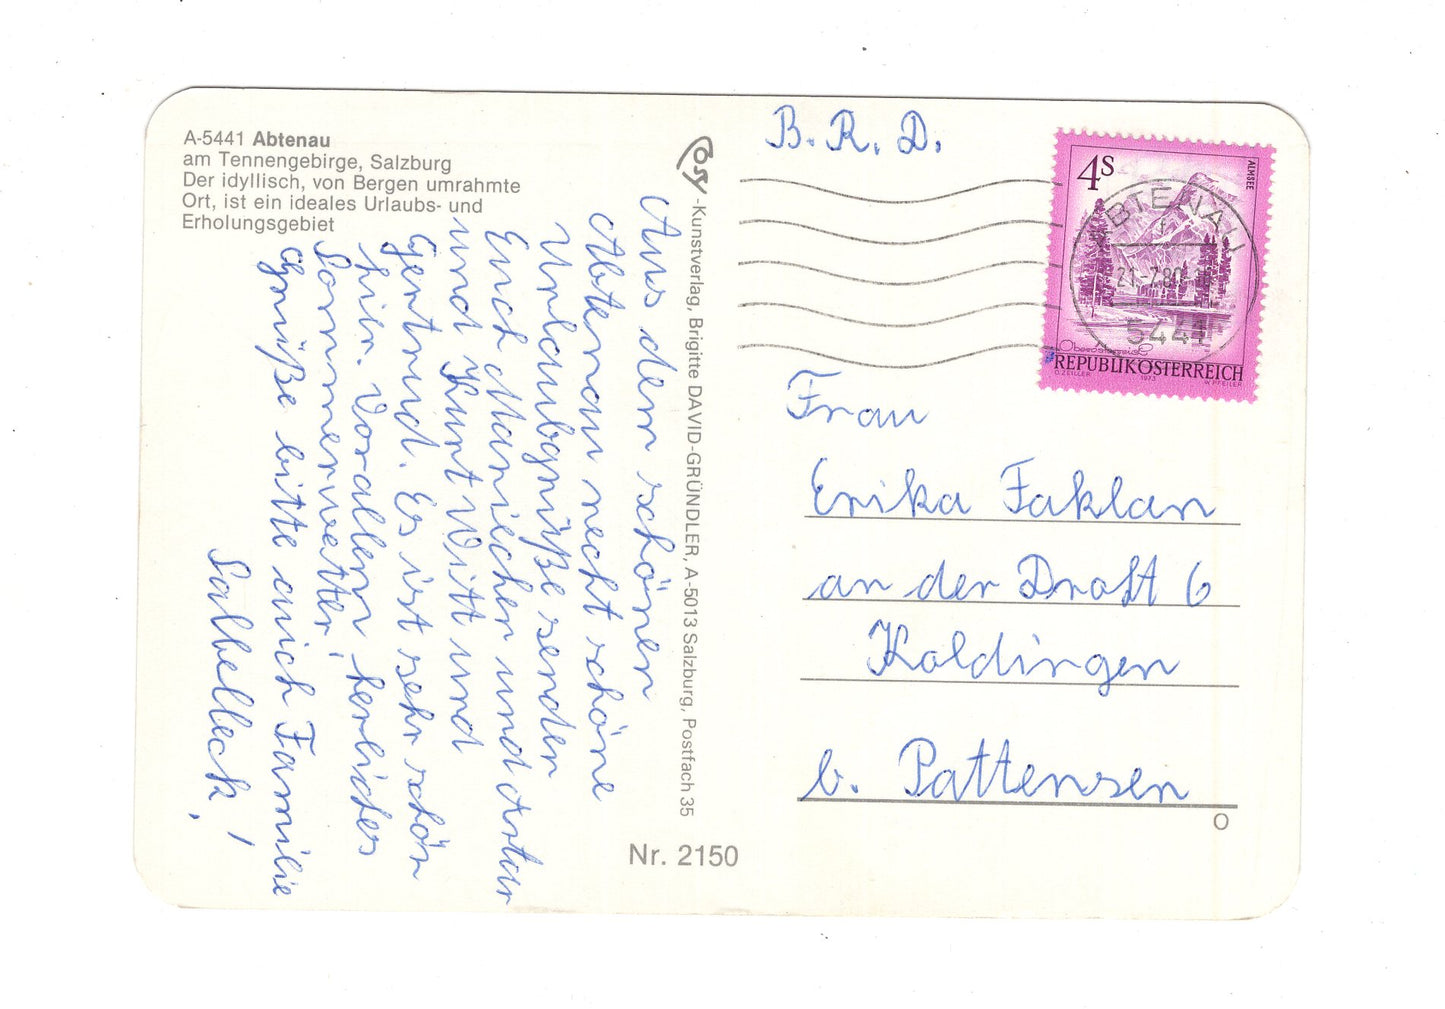 A-5441 Abtenau
am Tennengebirge, Salzburg
Der idyllisch, von Bergen umrahmte
Ort, ist ein ideales Urlaubs- und
Erholungsgebiet
Aus dem schönen
Abtenau recht schöne
Urlaubgrüße senden
Euch Mariechen und
und Kurt Witt und
Gertrud. Es ist sehr schön
hier. Vorallem herliches
Sommerwetter!
Grüße bitte auch Familie
Salbelleck!
Cosy-Kunstverlag, Brigitte DAVID-GRÜNDLER, A-5013 Salzburg, Postfach 35
Nr. 2150
B. R. D.
4S
ALMSEE
Oberösterreich
REPUBLIK ÖSTERREICH
O.ZEILLER 1973 W.PFEILER
ABTENAU
21.-7.80
5441
Frau
Erika Faklan
an der Draft 6
Koldingen
b. Pattensen